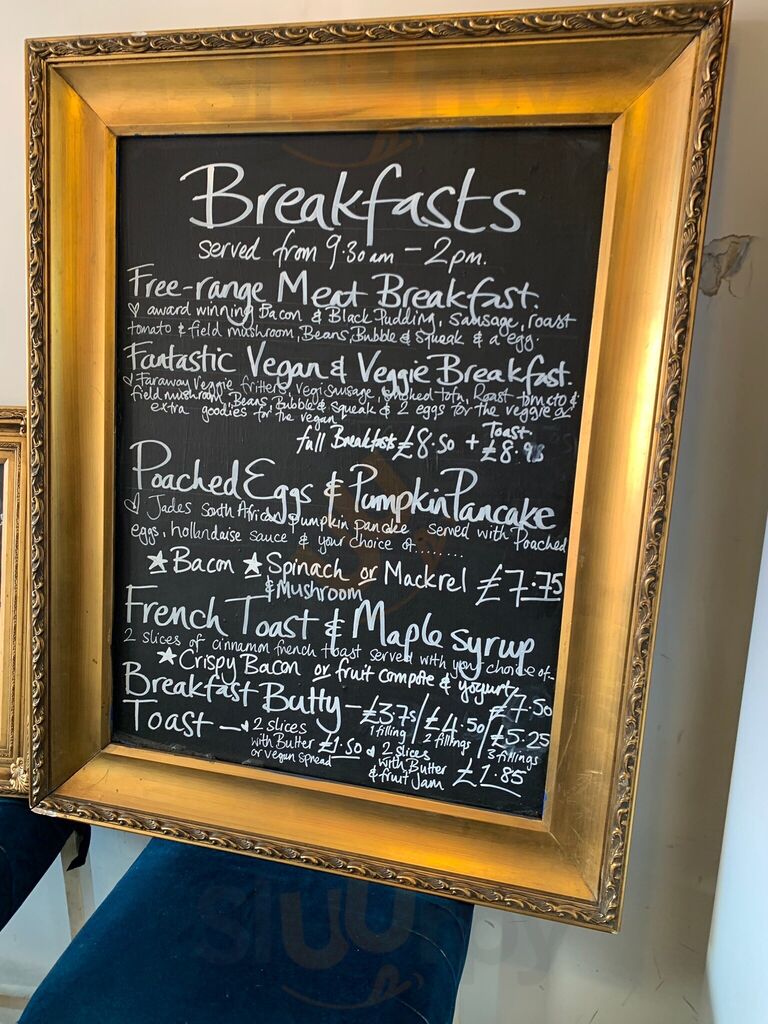 Breakfasts
served from 9.30am - 2pm.
Free-range Meat Breakfast.
♡ award winning Bacon & Black Pudding, Sausage, roast
tomato & field mushroom, Beans, Bubble & Squeak & a egg.
Fantastic Vegan & Veggie Breakfast.
♡ Faraway Veggie fritters, Vegi Sausage, smoked tofu, Roast tomato &
field mushroom, Beans, Bubble & Squeak & 2 eggs for the veggie or
extra goodies for the vegan
full Breakfasts £8.50 + Toast £8.95
Poached Eggs & Pumpkin Pancake
♡ Jades South African pumpkin pancake served with Poached
eggs, hollandaise sauce & your choice of........
★ Bacon ★ Spinach or Mackrel £7.75
& Mushroom
French Toast & Maple syrup
2 slices of cinnamon french toast served with your choice of-
★ Crispy Bacon or fruit compote & yogurt £7.50
Breakfast Butty - £3.75 / £4.50 / £5.25
1 filling 2 fillings 3 fillings
Toast - 2 slices
with Butter £1.50
or vegan spread
& 2 slices
with Butter
& fruit Jam £1.85
sluurpy